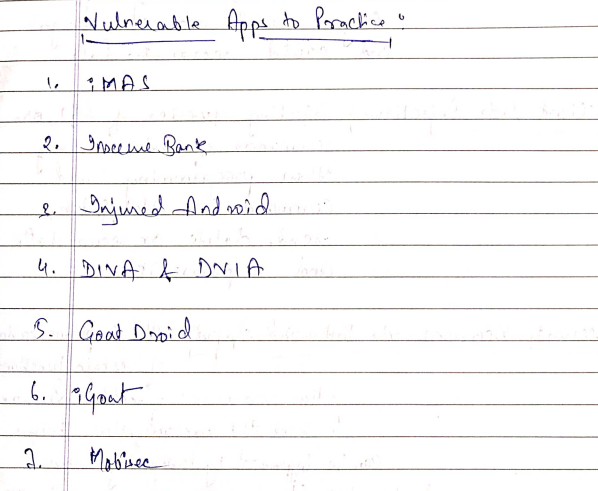 Vulnerable Apps to Practice :
1. iMAS
2. Insecure Bank
3. Injured Android
4. DIVA & DVIA
5. Goat Droid
6. iGoat
7. Mobisec